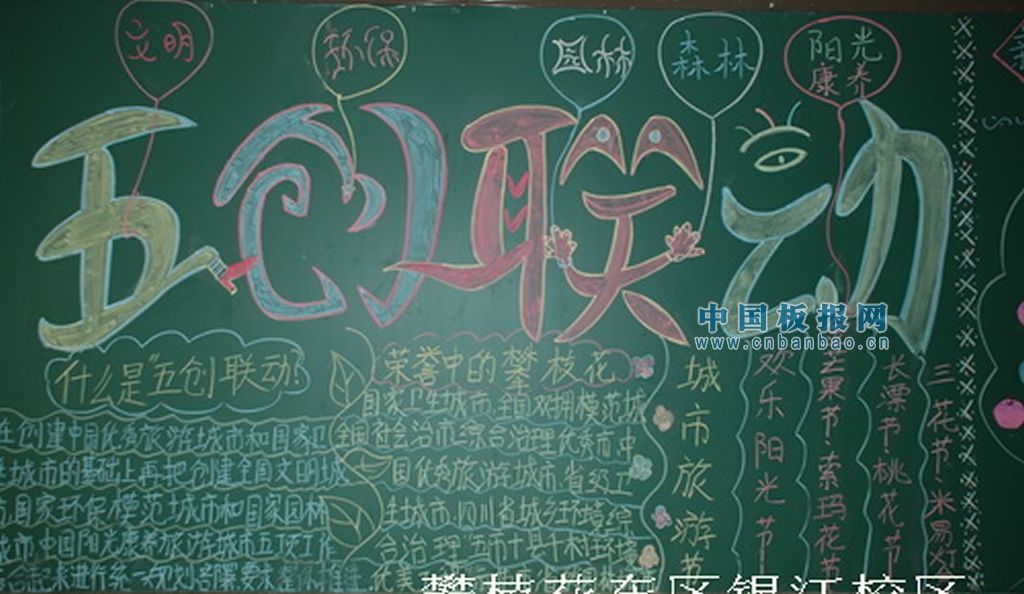 文明
环保
园林
森林
阳光
康养
五创联动
中国板报网
www.cnbanbao.cn
什么是"五创联动?
在创建中国优秀旅游城市和国家卫
生城市的基础上再把创建全国文明城
国家环保模范城市和国家园林
城市中国阳光康养旅游城市五项工作
合起来进行统一规划部署要求
荣誉中的攀枝花
国家卫生城市、全国双拥模范城
全国社会治市综合治理优秀市、中
国优秀旅游城市、省级卫
生城市、四川省城乡环境综
合治理"五市十县十村"环境
城市旅游节
欢乐阳光节
芒果节·索玛花节
长漂节·桃花节
三花节·米易
攀枝花东区银江校区